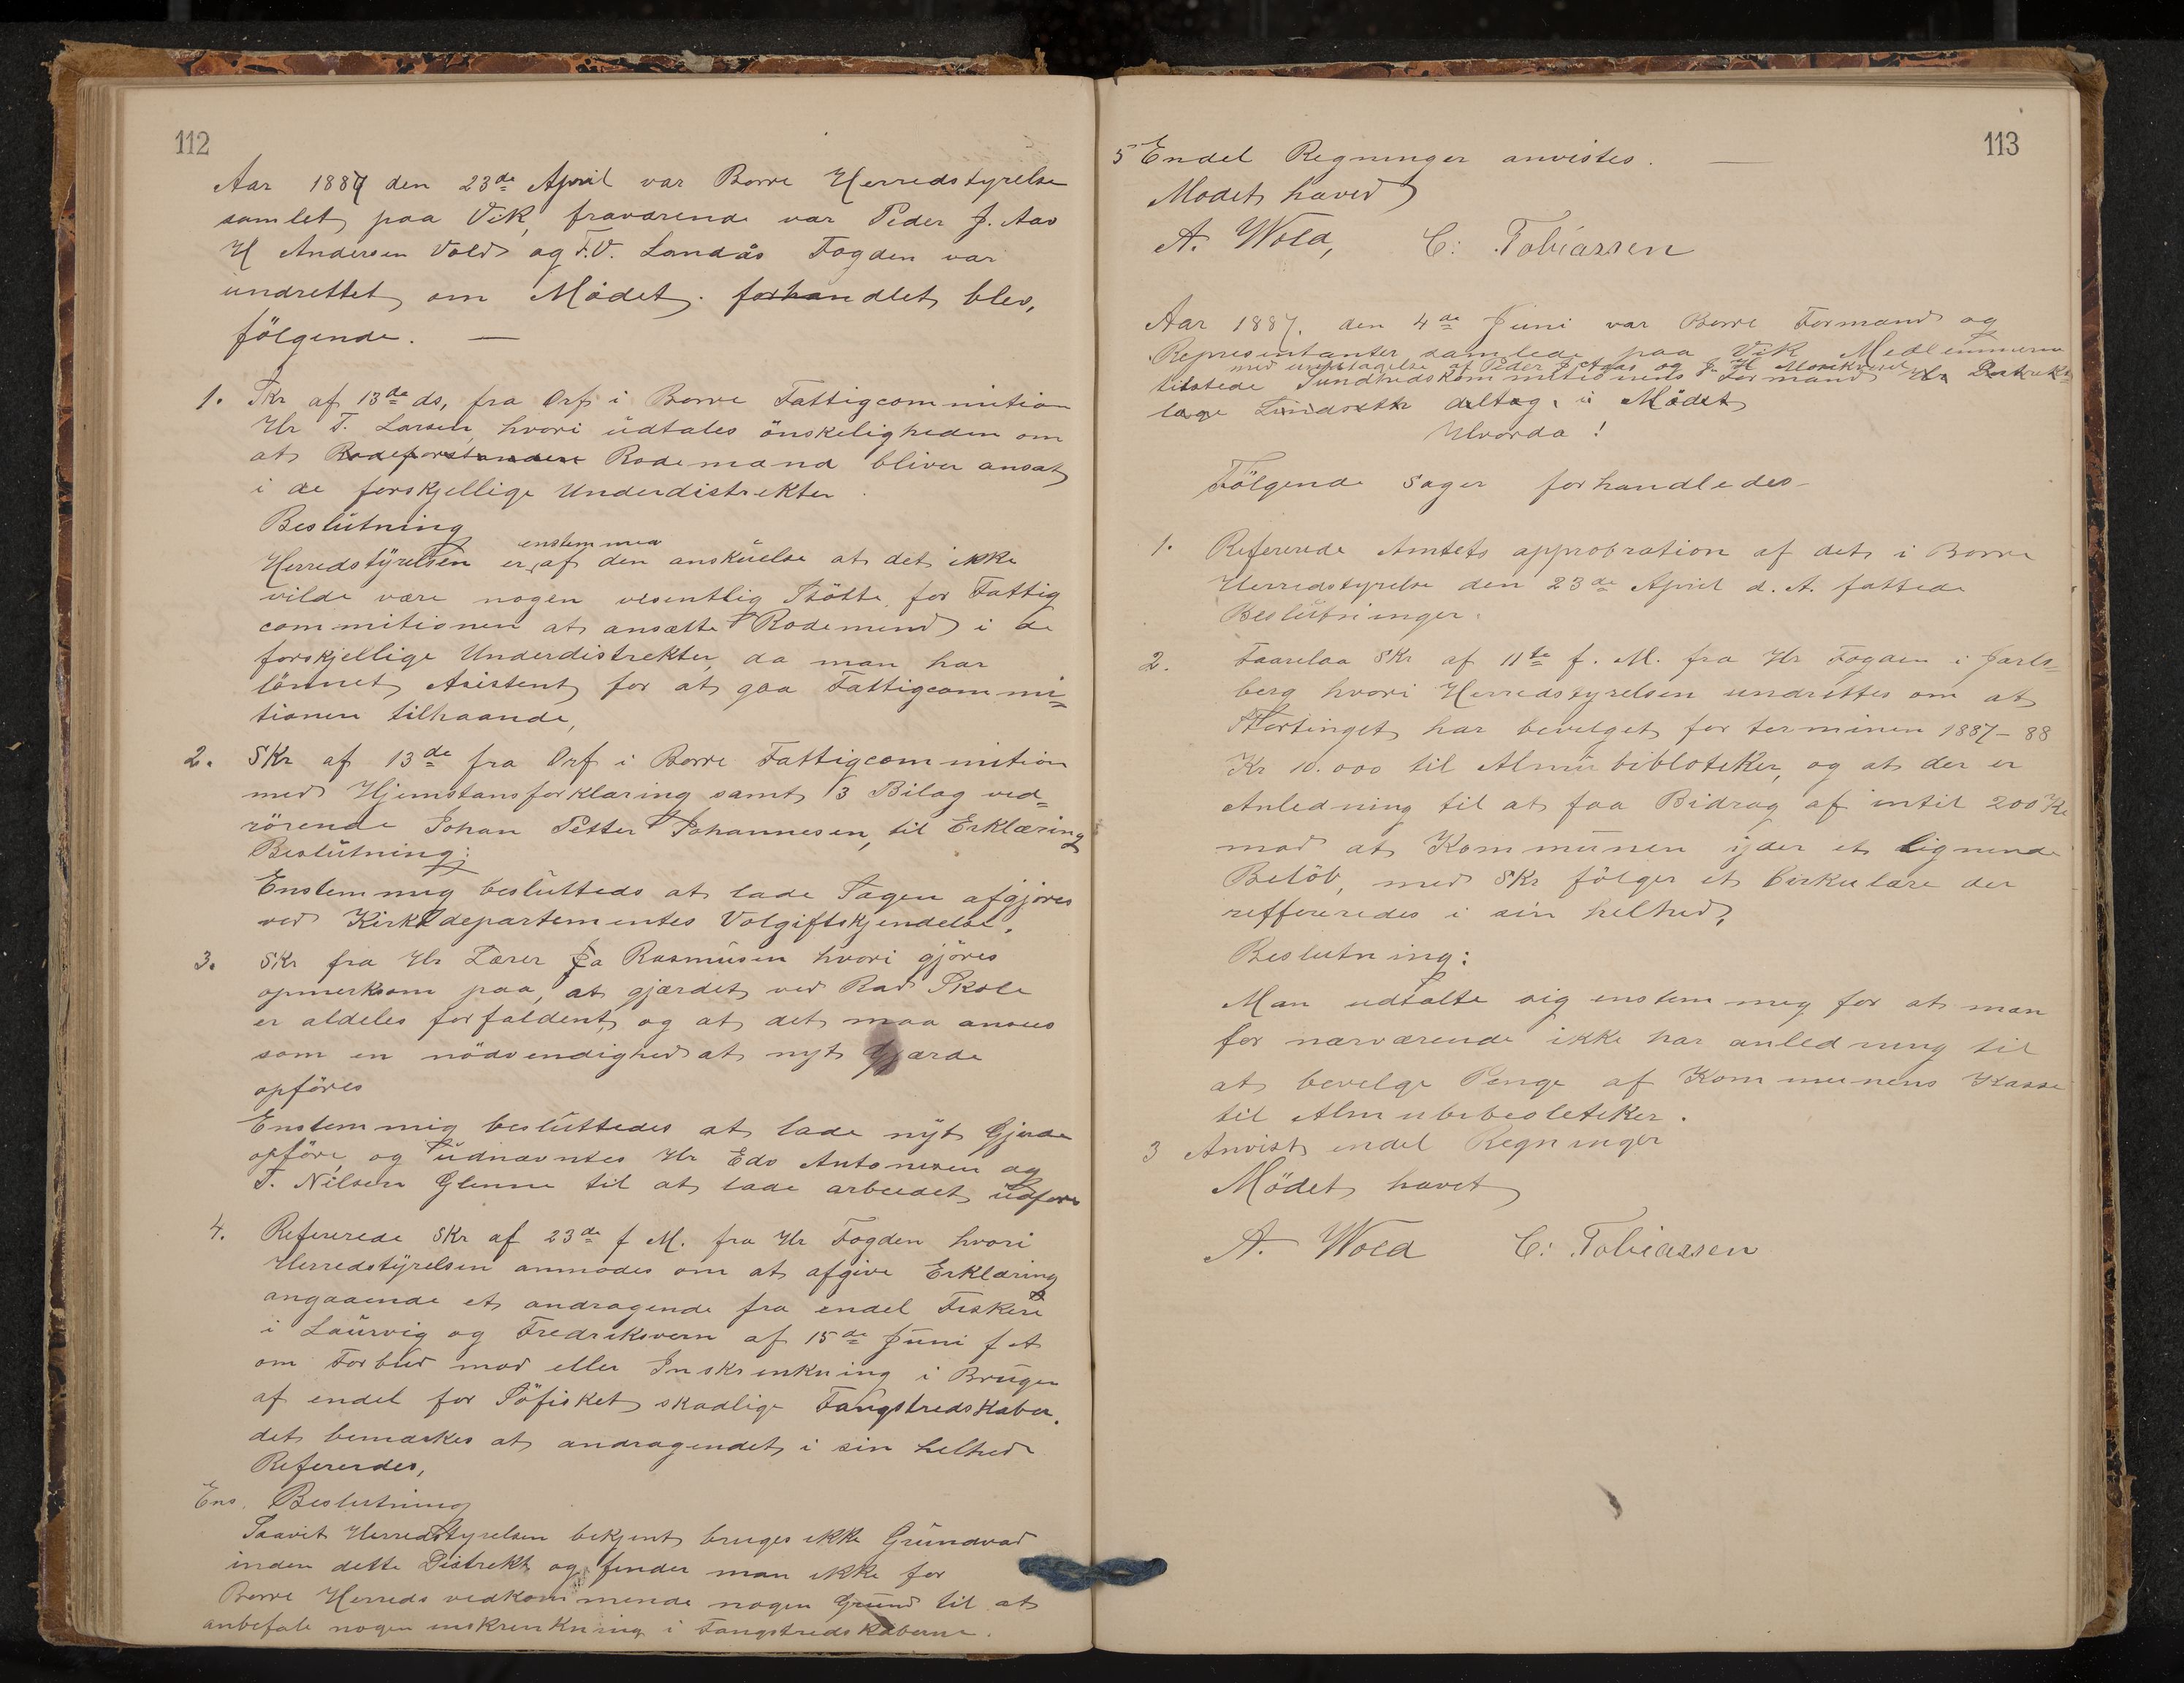 112
Aar 1887 den 23de April var Borre Herredstyrelse
samlet paa Vik, fraværende var Peder J. Aas
H Andersen Vold og F.V. Landås Fogden var
undrettet om Mödet. forhandlet blev,
fölgende. —
1. Skr af 13de ds, fra Orf i Borre Fattigcommition
Hr T. Larsen, hvori udtales önskeligheden om
at Rodeforstandere Rodemand bliver ansat
i de forskjellige Underdistrekter.
Beslutning
enstemmea
Herredstyrelsen er af den anskuelse at det ikke
vilde være nogen vesentlig Stötte for Fattig
commitionen at ansætte Rodemend i de
forskjellige Underdistrekter, da man har
lönnet Asistent for at gaa Fattigcommi=
tionen tilhaande,
2. Skr af 13de fra Orf i Borre Fattigcommition
med Hjemstansforklaring samt 3 Bilag ved=
rörende Johan Petter Johannesen, til Erklæring
Beslutning:
Enstemmig beslutteds at lade Sagen afgjöres
ved Kirkedepartementes Volgiftskjendelse.
3. Skr fra Hr Lærer Ja Rasmusen hvori gjöres
opmerksom paa, at gjærdet ved Rad Skole
er aldeles forfaldent, og at det maa ansees
som en nödvendighed at nyt Gjærde
opföres
Enstemmig besluttedes at lade nyt Gjerde
opföre, og udnævntes Hr Edv Antonesen og
T. Nilsen Glenne til at lade arbeidet udføre
4. Refererede Skr af 23de f M. fra Hr Fogden hvori
Herredstyrelsen anmodes om at afgive Erklæring
angaaende et andragende fra endel Fiskere
i Laurvig og Fredriksvern af 15de Juni f A
om Forbud mod eller Inskrenkning i Brugen
af endel for Söfisket skadlige Fangstredskaber.
det bemærkes at andragendet i sin helhed
Refererdes,
Ens. Beslutning
Saavit Herredstyrelsen bekjent bruges ikke Grundvad
inden dette Distrekt og finder man ikke for
Borre Herreds vedkommende nogen Grund til at
anbefale nogen inskrenkning i Fangstredskaberne.
113
5 Endel Regninger anvistes. —
Modet haved
A. Wold, C: Tobiassen
Aar 1887. den 4de Juni var Borre Formand og
Representanter samlede paa Vik Medlemmerne
med undtagelse af Peder J Aas og J. H
tilstede Sundhedskommitionens Formand Hr Destrekts
læge Lindseth deltog i Mödet
Hvorda!
Fölgende Sager forhandledes-
1. Refererede Amtets approbration af det i Borre
Herredstyrelse den 23de April d. A. fattede
Beslutninger.
2. Faarelaa Skr af 11te f. M. fra Hr Fogden i Jarls=
berg hvori Herredstyrelsen undrettes om at
Stortinget har bevelget for terminen 1887-88
Kr 10.000 til Almubibloteker, og at der er
Anledning til at faa Bidrag af intil 200 Kr
mod at Kommunen yder et lignende
Belöb, med Skr fölger et Cirkulære der
reffereredes i sin helhed,
Beslutning:
Man udtalte sig enstemmeg for at man
for nærværende ikke har anledning til
at bevelge Penge af Kommunens Kasse
til Almubibeoleteker.
3 Anvist endel Regninger
Mödet havet
A. Wold C: Tobiassen